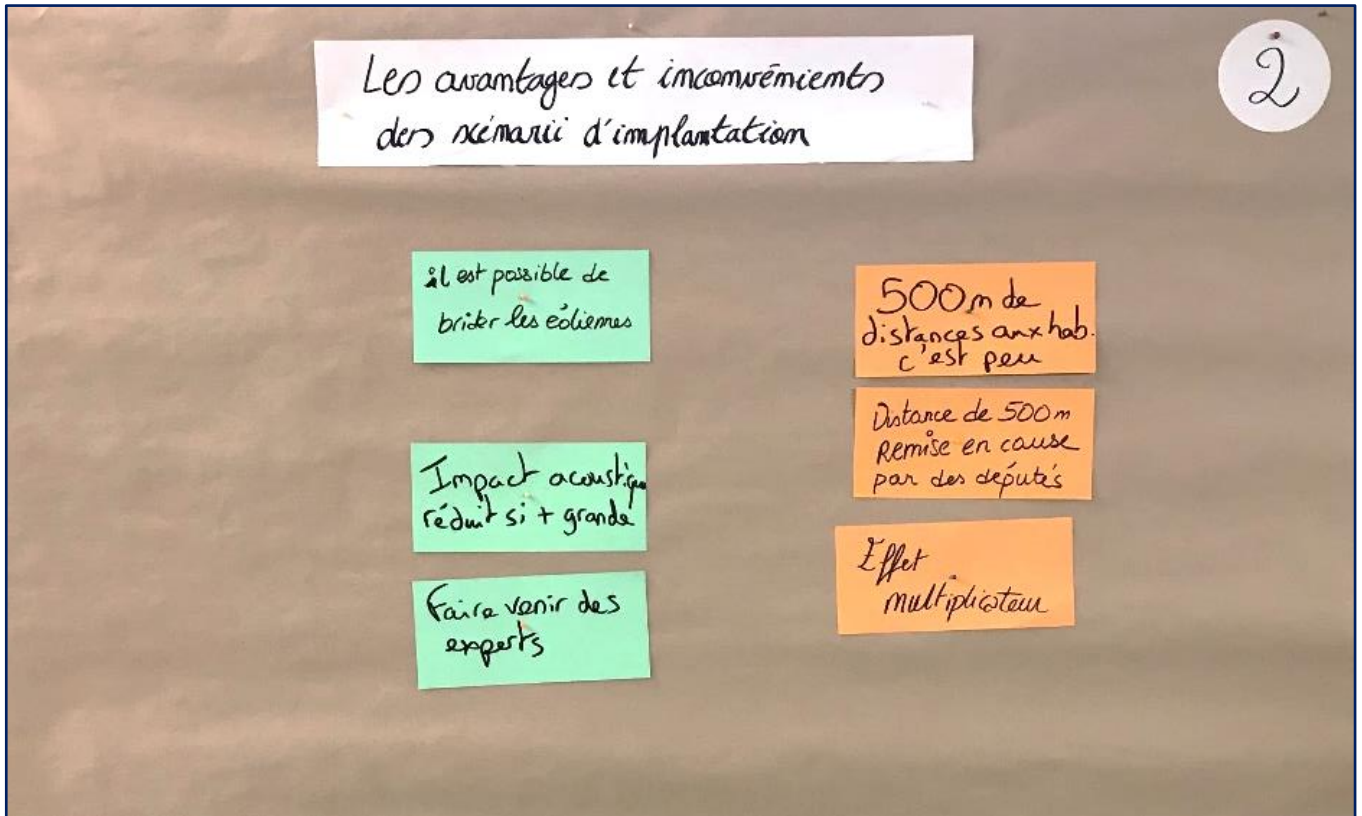 Les avantages et inconvénients
des scénarii d'implantation
2
il est possible de
brider les éoliennes
Impact acoustique
réduit si + grande
Faire venir des
experts
500m de
distances aux hab.
c'est peu
Distance de 500m
Remise en cause
par des députés
Effet
multiplicateur